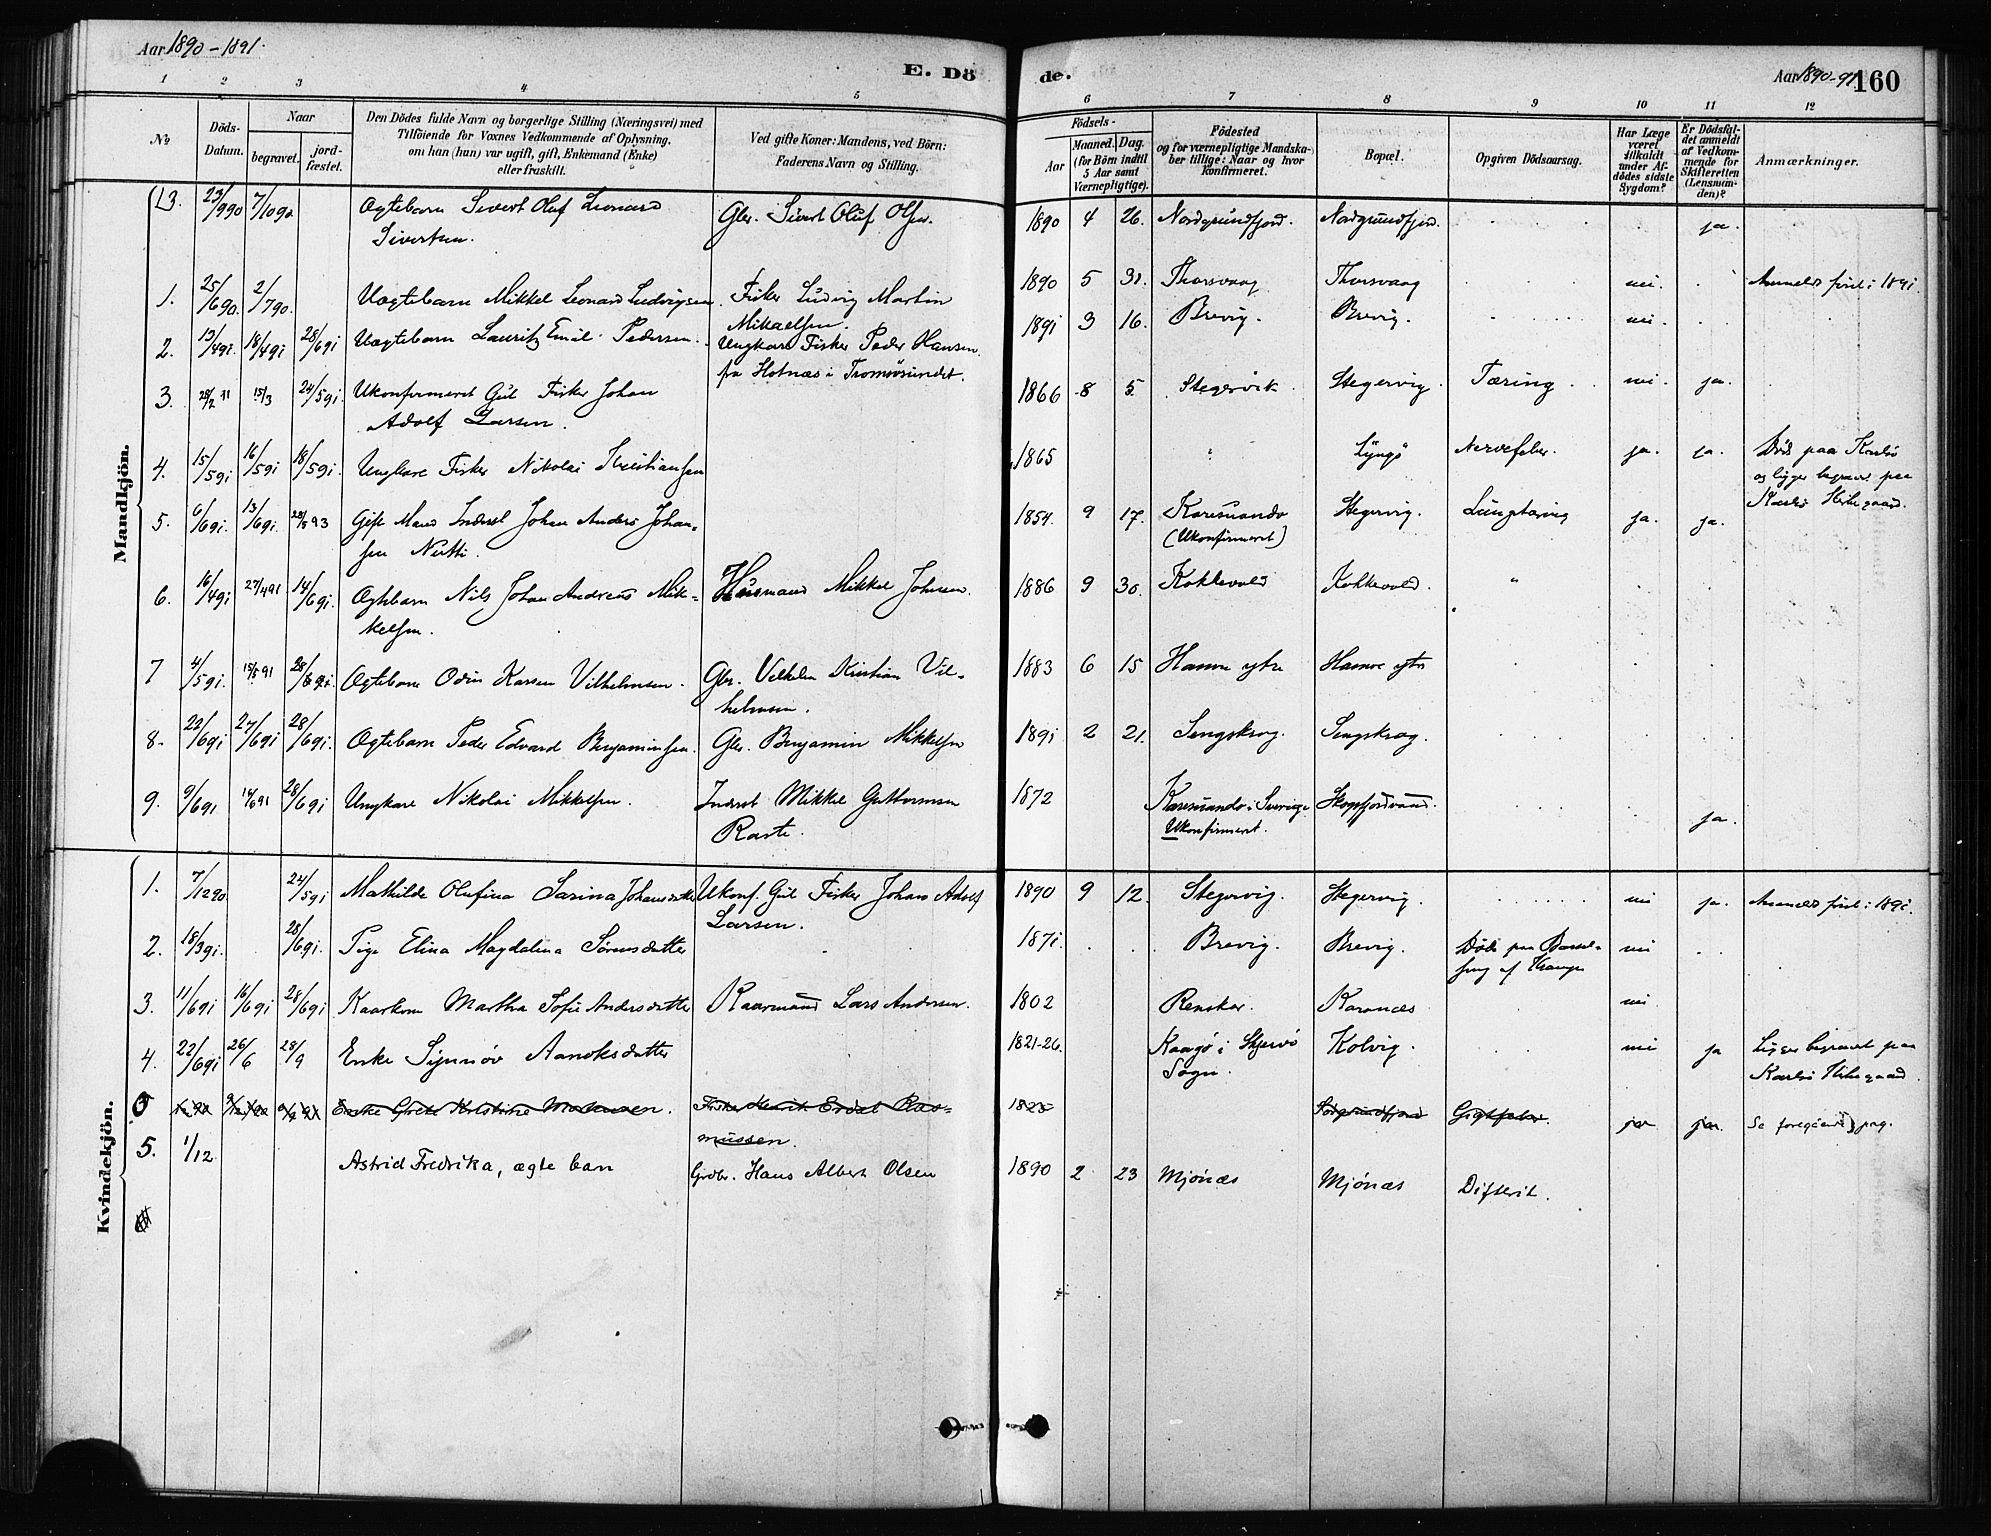 Aar 1890-1891.
E. Dö
de.
Aar 1890-91
160
1 2 3 4 5 6 7 8 9 10 11 12
No
Döds-Datum.
Naar
begravet.
jord-fæstet.
Den Dödes fulde Navn og borgerlige Stilling (Næringsvei) med
Tilföiende for Voxnes Vedkommende af Oplysning,
om han (hun) var ugift, gift, Enkemand (Enke)
eller fraskilt.
Ved gifte Koner: Mandens, ved Börn:
Faderens Navn og Stilling.
Födsels-
Aar
Maaned. Dag.
(for Börn indtil
5 Aar samt
Værnepligtige).
Födested
og for værnepligtige Mandska-
ber tillige: Naar og hvor
konfirmeret.
Bopæl.
Opgiven Dödsaarsag.
Har Læge
været
tilkaldt
under Af-
dödes sidste
Sygdom?
Er Dödsfal-
det anmeldt
af Vedkom-
mende for
Skifteretten
(Lensman-
den)?
Anmærkninger.
Mandkjön.
13. 23/9 90 7/10 90 Ægtebarn Sivert Oluf Leonard Gbr. Sivert Oluf Olsen. 1890 4 26. Nordgrundfjord. Nordgrundfjord. ja.
Sivertsen.
1. 25/6 90. 2/7 90. Uægtebarn Mikkel Leonard Ludvigsen Fisker Ludvig Martin 1890 5 31. Thorsvaag Thorsvaag nei. Anmeldt först i 1891.
Mikaelsen.
2. 13/4 91. 18/4 91 28/6 91 Uægtebarn Lauritz Emil Pedersen. Ungkarl Fisker Peder Hansen 1891 3 16. Brevig. Brevig. nei.
fra Hotnæs i Tromsøsundet.
3. 28/2 91 15/3 24/5 91. Ukonfirmeret Gut Fisker Johan 1866 8 5 Stegervik Stegervig. Tæring nei. ja.
Adolf Larsen.
4. 15/5 91 16/5 91 18/5 91. Ungkarl Fisker Nikolai Kristiansen 1865 Lyngö Nervefeber. ja. ja. Död paa Karlsö
og ligger begravet paa
Karlsö Kirkegaard.
5. 6/6 91. 13/6 91. 28/5 93 Gift Mand Inderst Johan Anders Johan- 1854. 9 17. Karesuando Stegervig. Lungtæring ja. ja.
sen Nutti. (Ukonfirmeret)
6. 16/4 91 27/4 91 14/6 91. Ægtebarn Nils Johan Andreas Mik- Husmand Mikkel Johnsen. 1886 9 30. Kokkevold Kokkevold. "
kelsen.
7 4/5 91. 15/5 91 28/6 91. Ægtebarn Odin Karsen Vilhelmsen. Gbr. Vilhelm Kristian Vil- 1883 6 15 Hamre ytre Hamre ytre
helmsen.
8. 22/6 91 27/6 91 28/6 91. Ægtebarn Peder Edvard Benjaminsen. Gbr. Benjamin Mikkelsen 1891 2 21. Sengskrog. Sengskrog.
9. 9/6 91 14/6 91 28/6 91 Ungkarl Nikolai Mikkelsen. Inderst Mikkel Guttormsen 1872 Karesuando i Sverige Skogsfjordvand. ja.
Raste. Ukonfirmeret.
Kvindekjön.
1. 7/12 90 24/5 91 Mathilde Olufina Sarina Johansdatter Ukonf. Gut Fisker Johan Adolf 1890 9 12. Stegervig. Stegervig. nei ja. Anmeldt först i 1891.
Larsen.
2. 18/3 91. 28/6 91. Pige Elina Magdalena Sørensdatter 1871. Brevig. Brevig. Döde paa Barsel- nei
seng af Krampe
3. 11/6 91 16/6 91 28/6 91 Kaarkone Martha Sofie Andersdatter Kaarmand Lars Andersen. 1802 Renskar. Karanæs nei
4. 22/6 91 26/6 28/9 Enke Synnöv Aanoksdatter 1821-26. Kaagö i Skjervö Kolvig. nei ja Ligger begravet paa
Sogn. Karlsö Kirkegaard.
Enke Grete Kristine Fisker Henrik Erdal Ras- 1825 Sørgrundfjord Gigtfeber. ja ja. Se foregåend pag.
mussen.
5. 1/12 Astrid Fredrika, ægte barn Grdbr. Hans Albert Olsen 1890 2 23 Mjönæs Mjönæs Difterit.